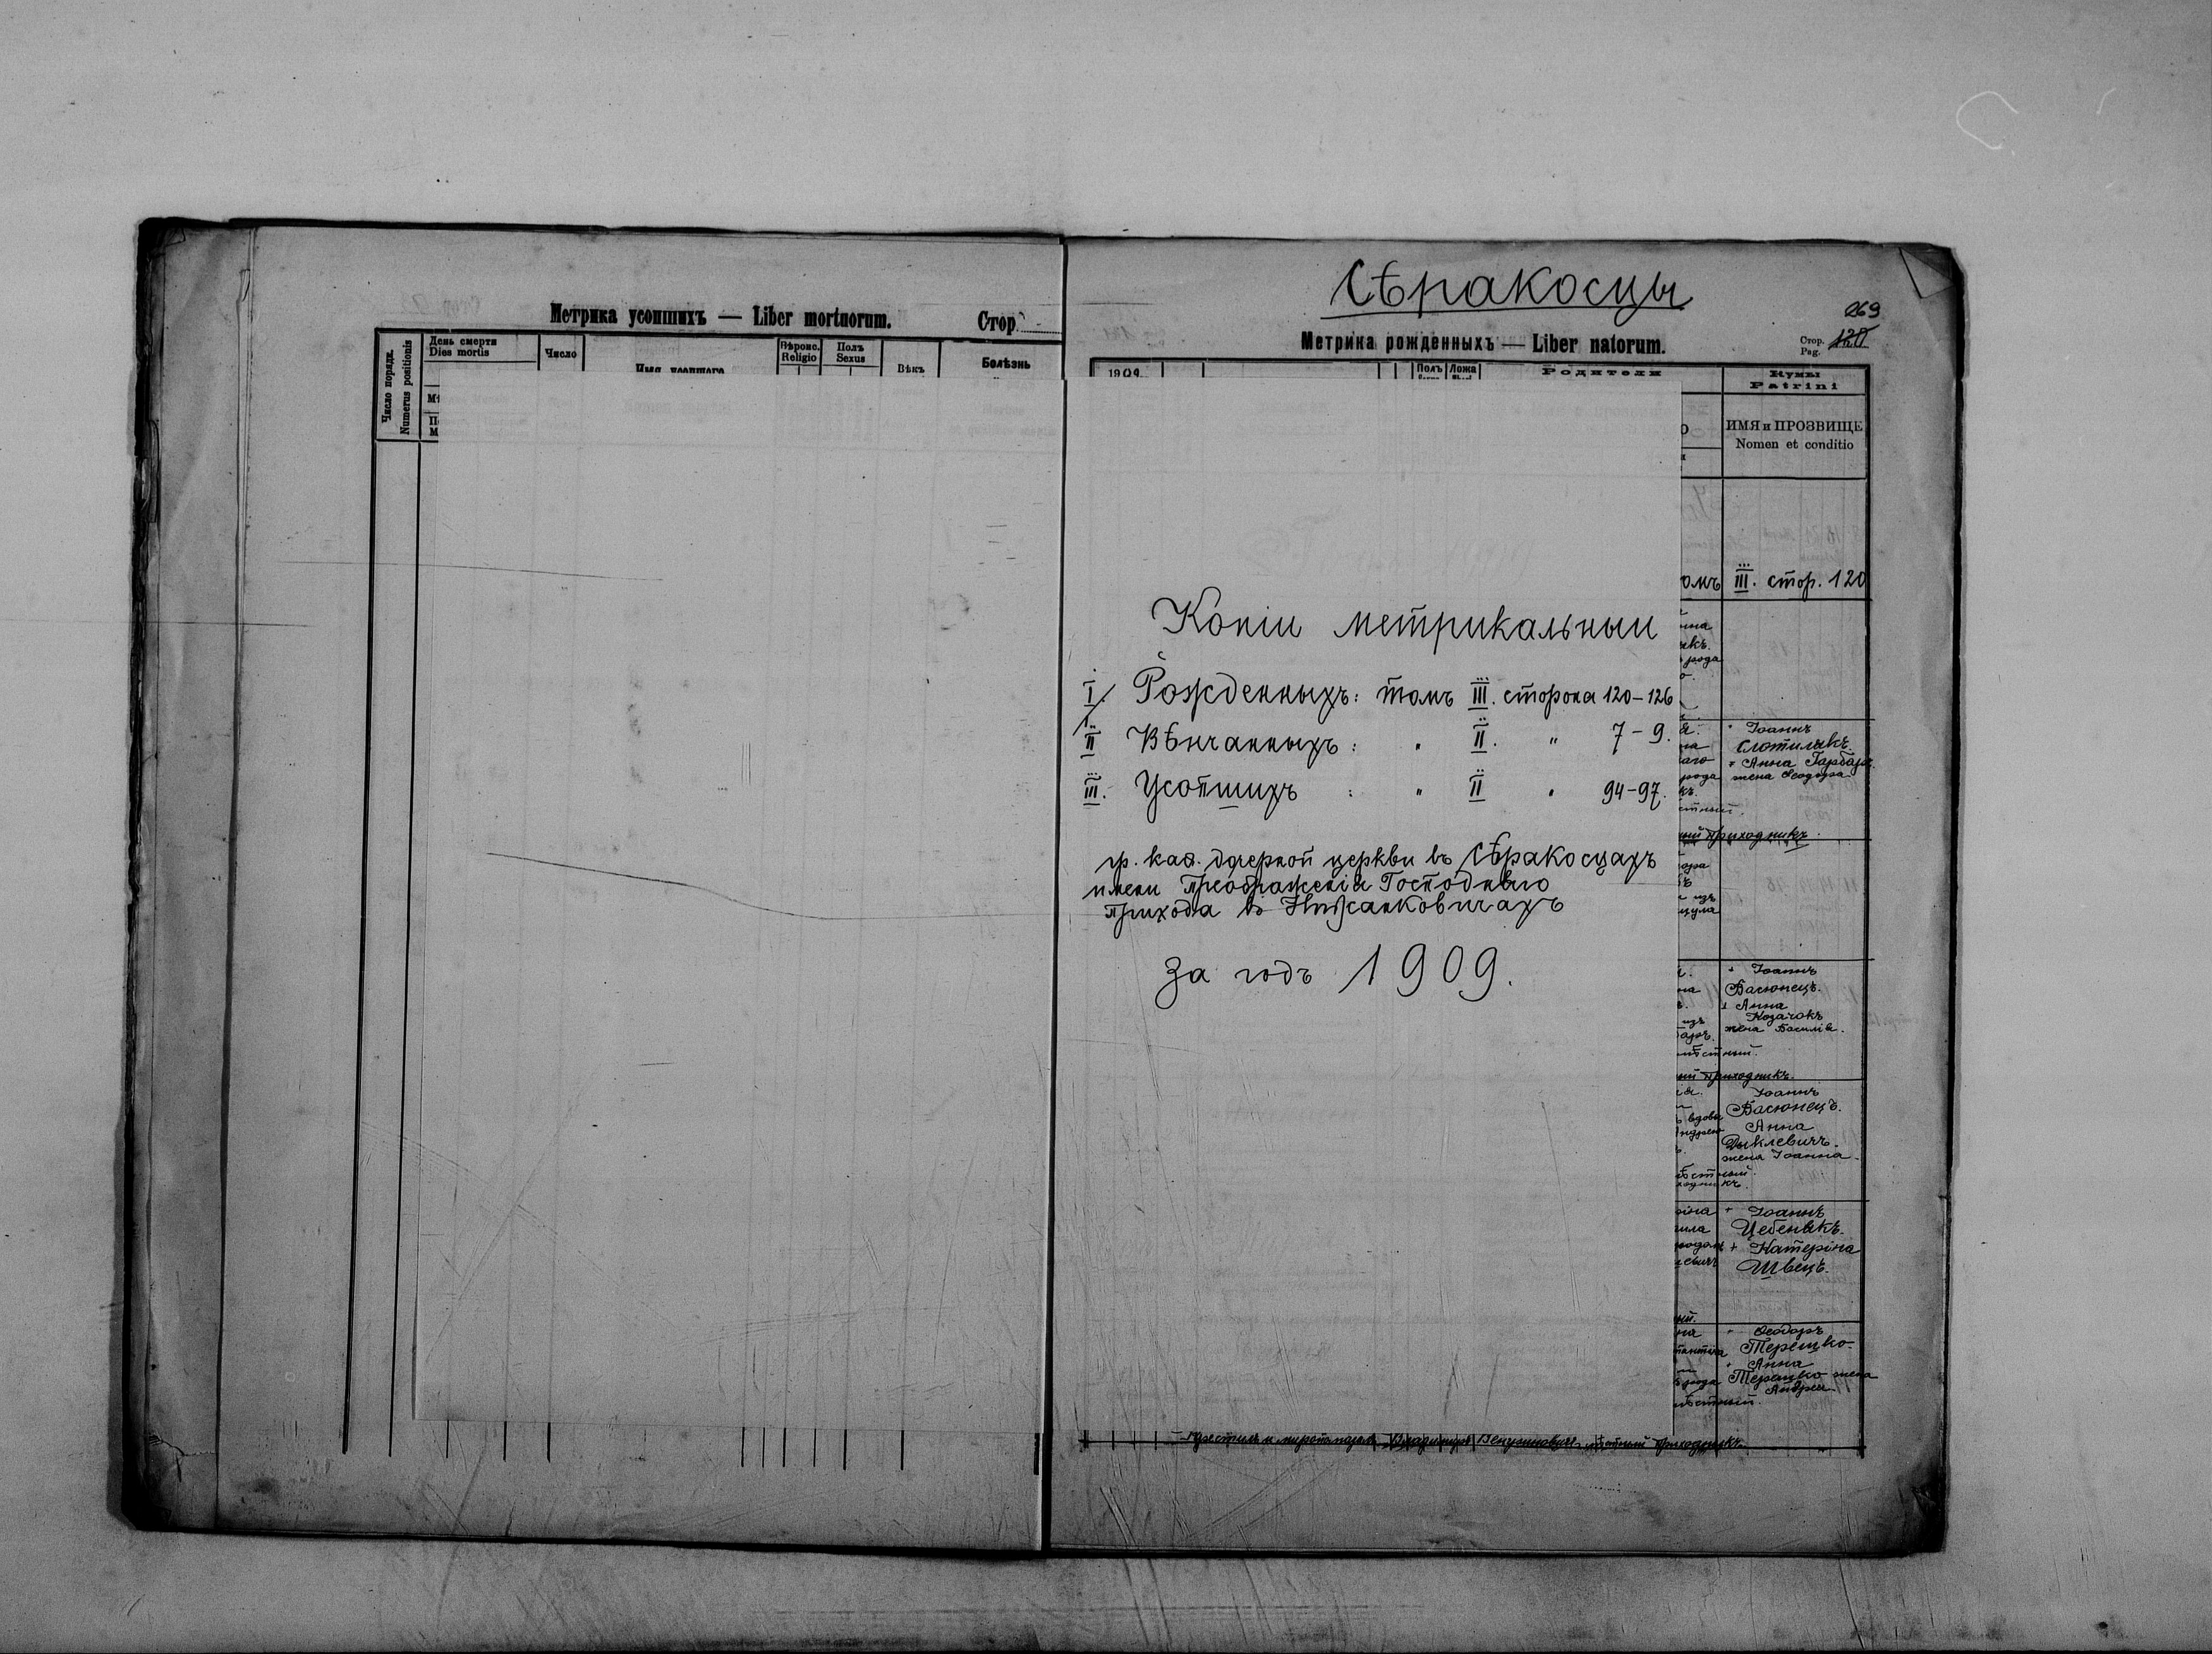 Метрика усопшихъ — Liber mortuorum.
Стор.
Число порядк.
Numerus positionis
День смерти
Dies mortis
Число
Имя усопшаго
Вѣроис.
Religio
Полъ
Sexus
Вѣкъ
Болѣзнь
Сѣракосцы
269
Метрика рожденныхъ — Liber natorum.
Стор.
Pag. 120
1909.
Полъ
Ложа
Родители
Кумы
Patrini
ИМЯ и ПРОЗВИЩЕ
Nomen et conditio
омъ III. стор. 120
Копіи метрикальныи
I. Рожденныхъ: томъ III. сторона 120–126
II Вѣнчанныхъ: " II. " 7–9.
III. Усопшихъ : " II " 94–97.
гр. каѳ. дочерной церкви въ Сѣракосцахъ
имени Преображенія Господняго
Прихода въ Нижанковичахъ
за годъ 1909.
рода
Іоаннъ
Слотилякъ
Анна Гарбаръ
жена Ѳеодора
приходникъ.
Іоаннъ
Васюнецъ.
Анна
Козачокъ
жена Василія.
приходникъ.
Іоаннъ
Васюнецъ.
вдова
Анна
Дыклевичъ.
жена Іоанна.
Іоаннъ
Цебенякъ.
Катеріна
Швецъ.
Ѳеодоръ
Терешко
Анна
Терешко жена
Андрея
крестилъ и миропомазалъ Владиміръ Венгриновичъ мѣстный приходникъ.